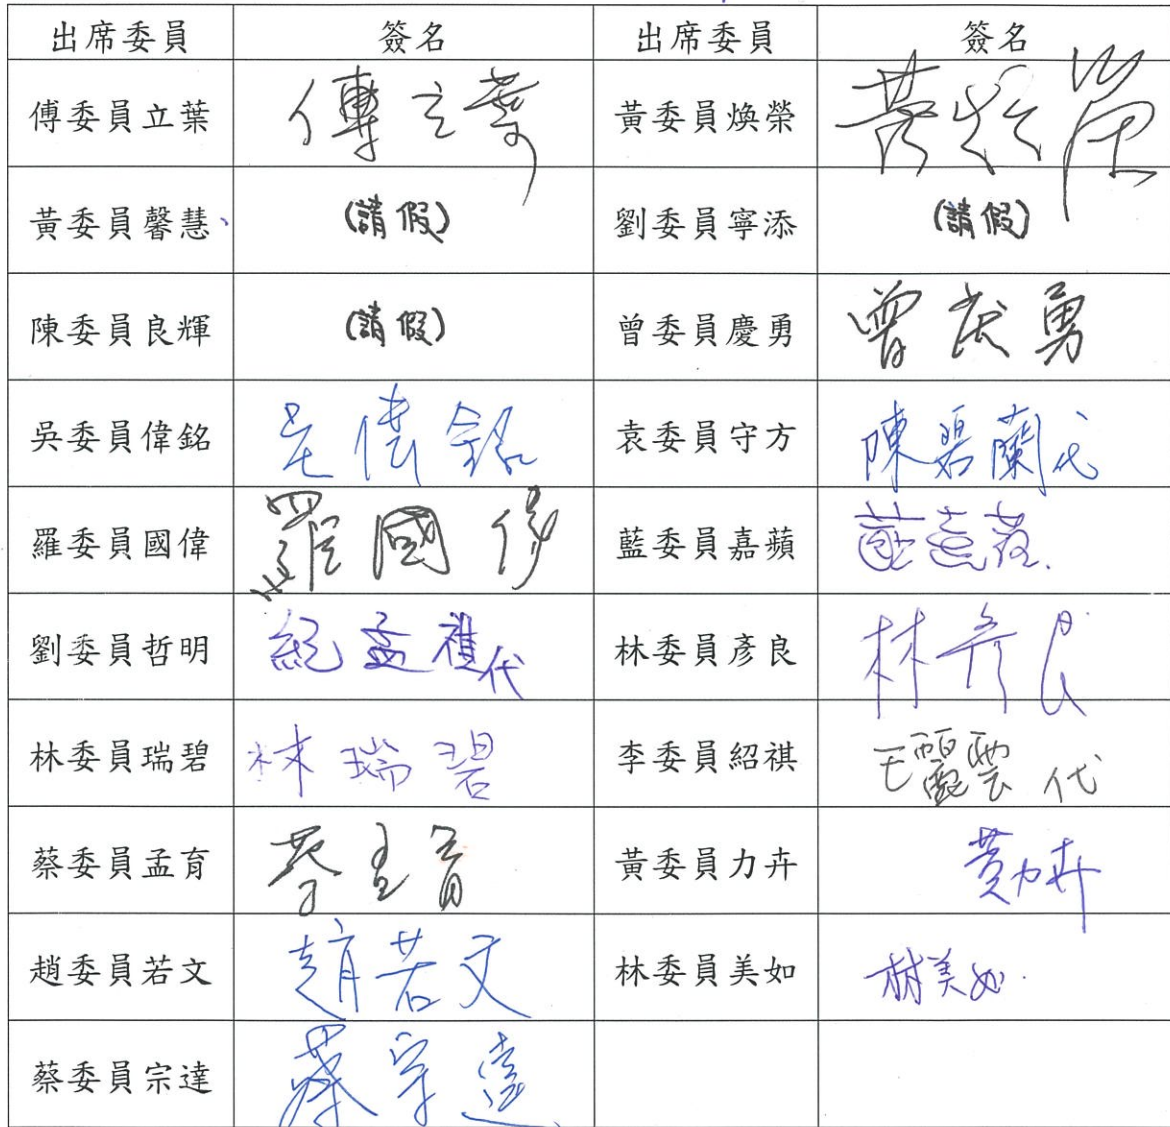 出席委員 簽名 出席委員 簽名
傅委員立葉 傅立葉 黃委員煥榮 黃煥榮
黃委員馨慧、 (請假) 劉委員寧添 (請假)
陳委員良輝 (請假) 曾委員慶勇 曾慶勇
吳委員偉銘 吳偉銘 袁委員守方 陳碧蘭代
羅委員國偉 羅國偉 藍委員嘉蘋
劉委員哲明 紀孟禎代 林委員彥良 林彥良
林委員瑞碧 林瑞碧 李委員紹祺 王靈雲代
蔡委員孟育 蔡孟育 黃委員力卉 黃力卉
趙委員若文 趙若文 林委員美如 林美如
蔡委員宗達 蔡宗達